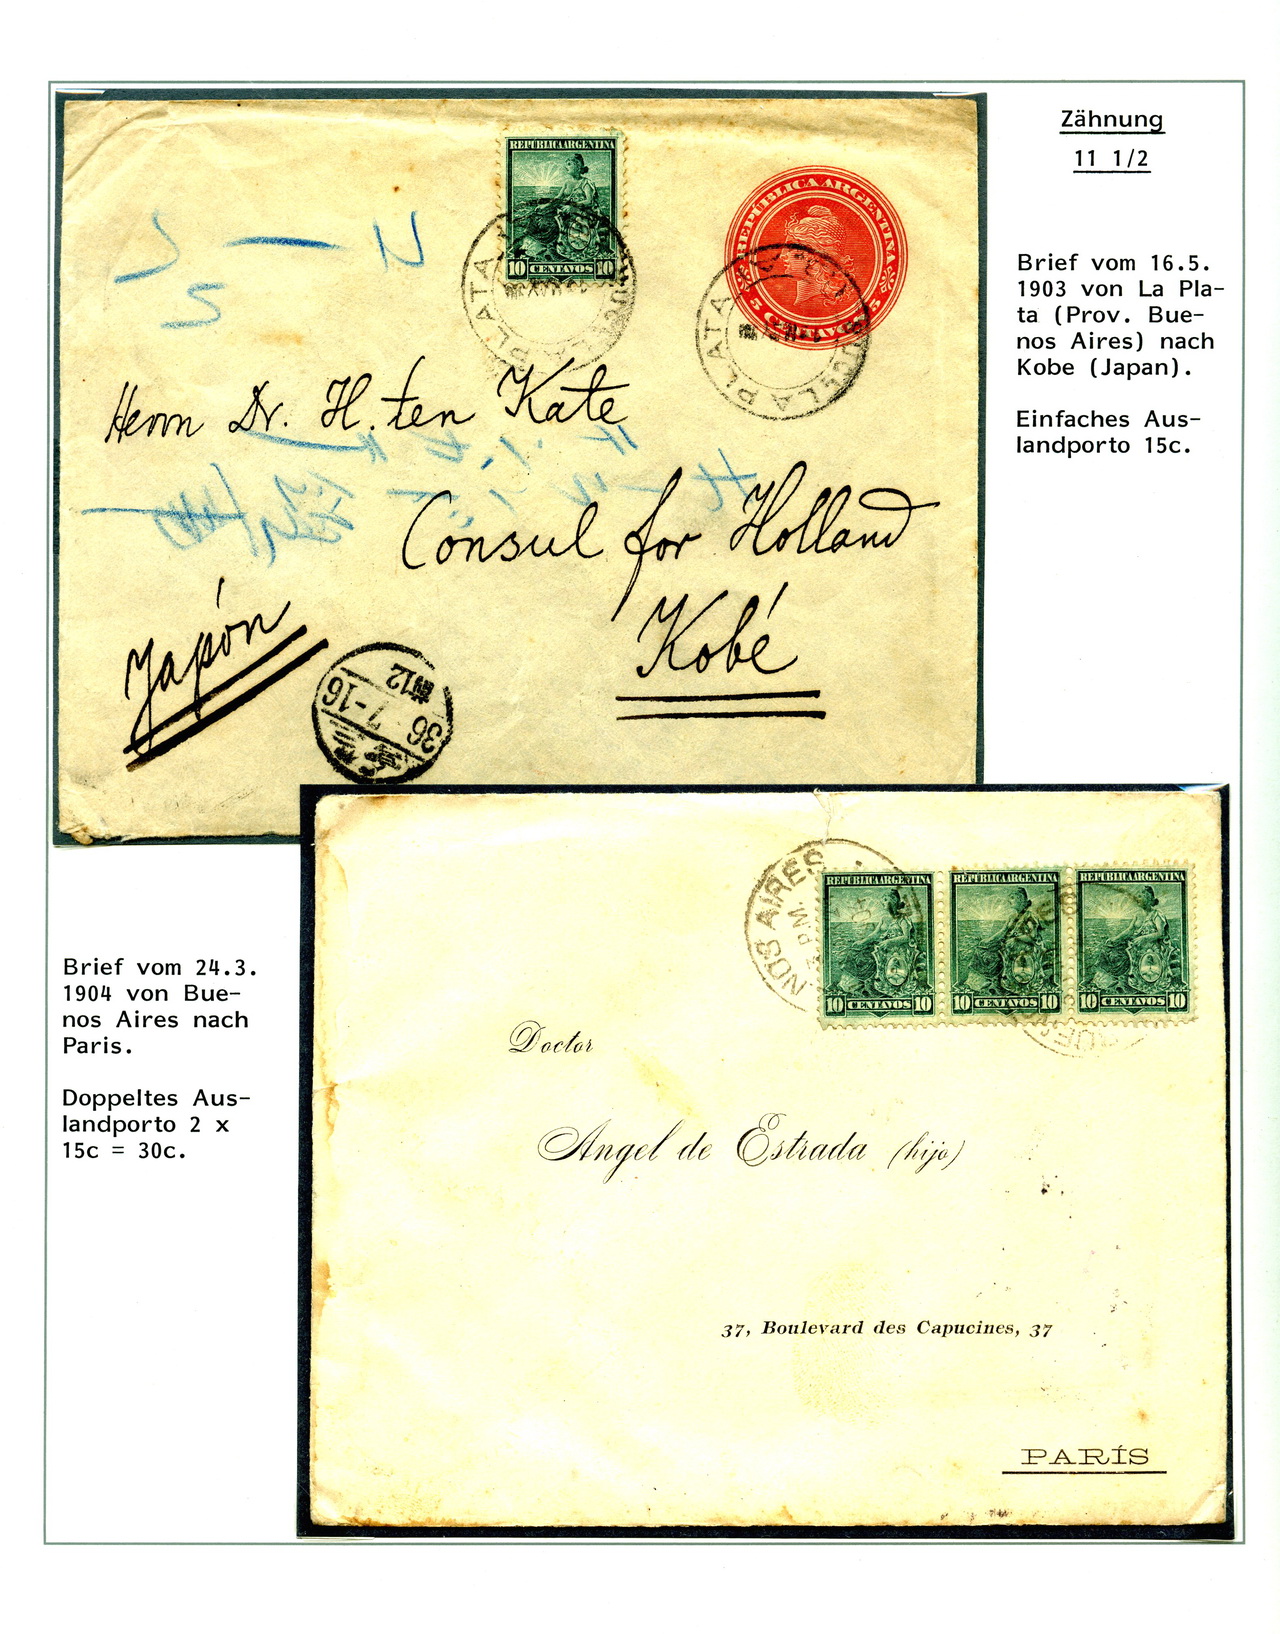 Zähnung
11 1/2
Brief vom 16.5.
1903 von La Pla-
ta (Prov. Bue-
nos Aires) nach
Kobe (Japan).
Einfaches Aus-
landporto 15c.
REPUBLICA ARGENTINA
10 CENTAVOS 10
REPÚBLICA ARGENTINA
5 CENTAVOS 5
LA PLATA
LA PLATA
Herrn Dr. H. ten Kate
Consul for Holland
Kobé
Japón
36 7-16
前12
Brief vom 24.3.
1904 von Bue-
nos Aires nach
Paris.
Doppeltes Aus-
landporto 2 x
15c = 30c.
NOS AIRES
P.M.
REPUBLICA ARGENTINA
10 CENTAVOS 10
REPUBLICA ARGENTINA
10 CENTAVOS 10
REPUBLICA ARGENTINA
10 CENTAVOS 10
Doctor
Angel de Estrada (hijo)
37, Boulevard des Capucines, 37
PARÍS